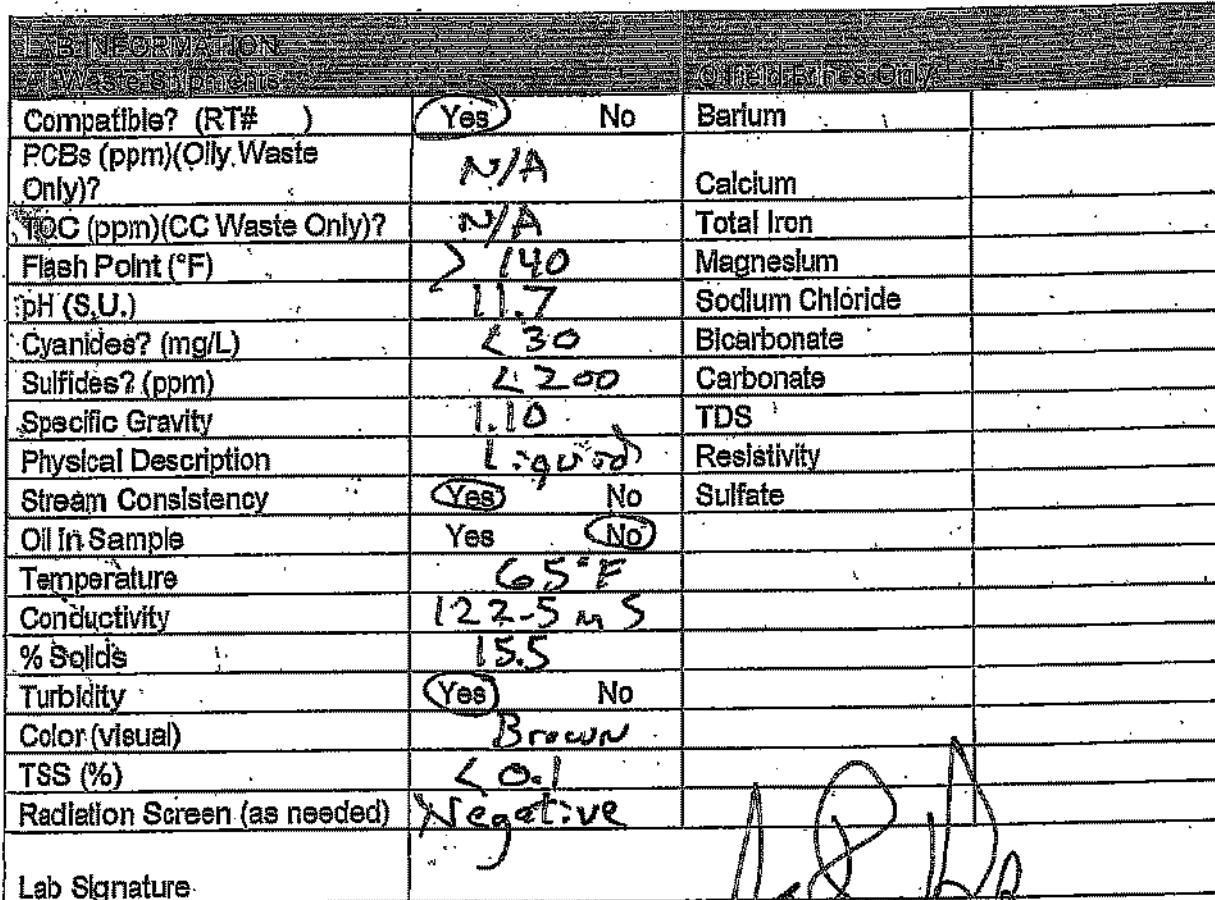 LAB INFORMATION
All Waste Shipments Oilfield Brines Only
Compatible? (RT# ) Yes No Barium
PCBs (ppm)(Oily Waste
Only)? N/A Calcium
TOC (ppm)(CC Waste Only)? N/A Total Iron
Flash Point (°F) > 140 Magnesium
pH (S.U.) 11.7 Sodium Chloride
Cyanides? (mg/L) <30 Bicarbonate
Sulfides? (ppm) <200 Carbonate
Specific Gravity 1.10 TDS
Physical Description Liquid Resistivity
Stream Consistency Yes No Sulfate
Oil In Sample Yes No
Temperature 65°F
Conductivity 122.5 mS
% Solids 15.5
Turbidity Yes No
Color (visual) Brown
TSS (%) <0.1
Radiation Screen (as needed) Negative
Lab Signature